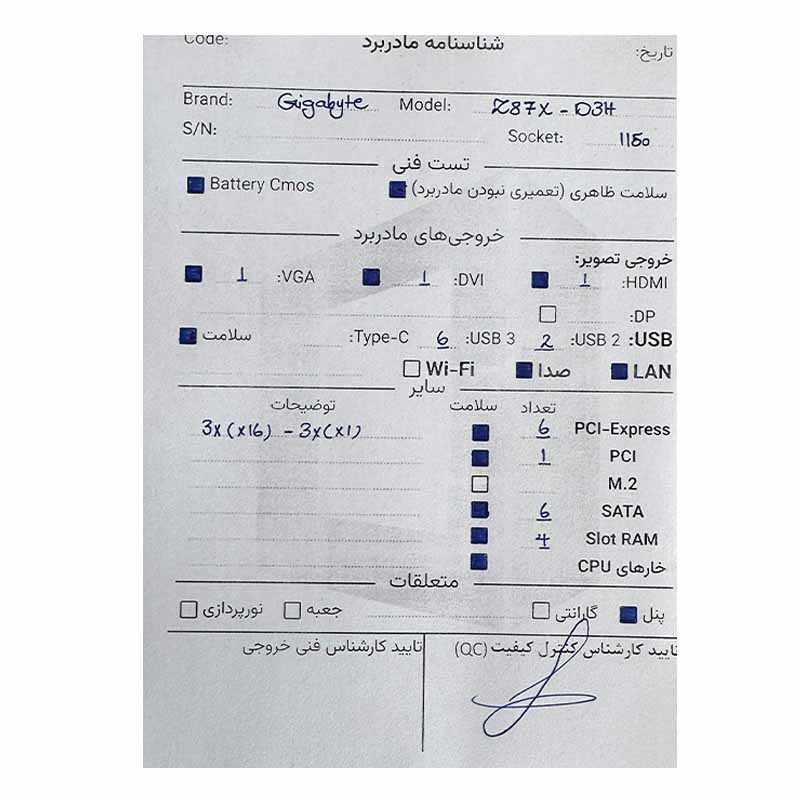 شناسنامه مادربرد
Code:
تاریخ:
Brand: Gigabyte Model: Z87X - D3H
S/N: Socket: 1150
تست فنی
سلامت ظاهری (تعمیری نبودن مادربرد) Battery Cmos
خروجی‌های مادربرد
خروجی تصویر:
HDMI: 1 DVI: 1 VGA: 1
DP:
USB: USB 2: 2 USB 3: 6 Type-C: سلامت
LAN صدا Wi-Fi
سایر
تعداد سلامت توضیحات
PCI-Express 6 3x(x16) - 3x(x1)
PCI 1
M.2
SATA 6
Slot RAM 4
خارهای CPU
متعلقات
پنل گارانتی جعبه نورپردازی
تایید کارشناس کنترل کیفیت (QC) تایید کارشناس فنی خروجی